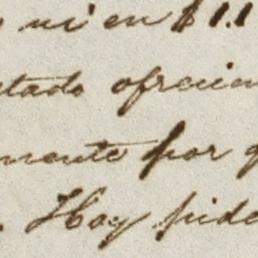 ni en $1.1
tado ofrecien
mente por q
. Hoy pide